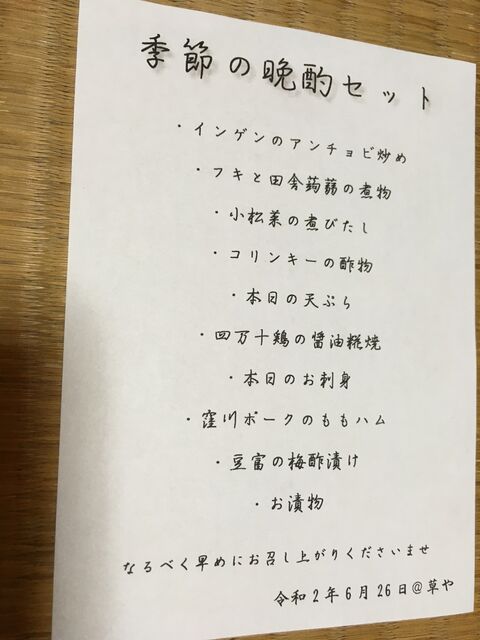 季節の晩酌セット
・インゲンのアンチョビ炒め
・フキと田舎蒟蒻の煮物
・小松菜の煮びたし
・コリンキーの酢物
・本日の天ぷら
・四万十鶏の醤油糀焼
・本日のお刺身
・窪川ポークのももハム
・豆富の梅酢漬け
・お漬物
なるべく早めにお召し上がりくださいませ
令和2年6月26日@草や